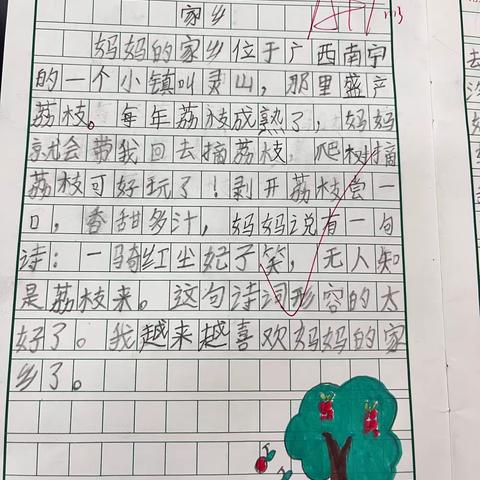 家乡
妈妈的家乡位于广西南宁
的一个小镇叫灵山，那里盛产
荔枝。每年荔枝成熟了，妈妈
就会带我回去摘荔枝，爬树摘
荔枝可好玩了！剥开荔枝尝一
口，香甜多汁，妈妈说有一句
诗：一骑红尘妃子笑，无人知
是荔枝来。这句诗词形容的太
好了。我越来越喜欢妈妈的家
乡了。